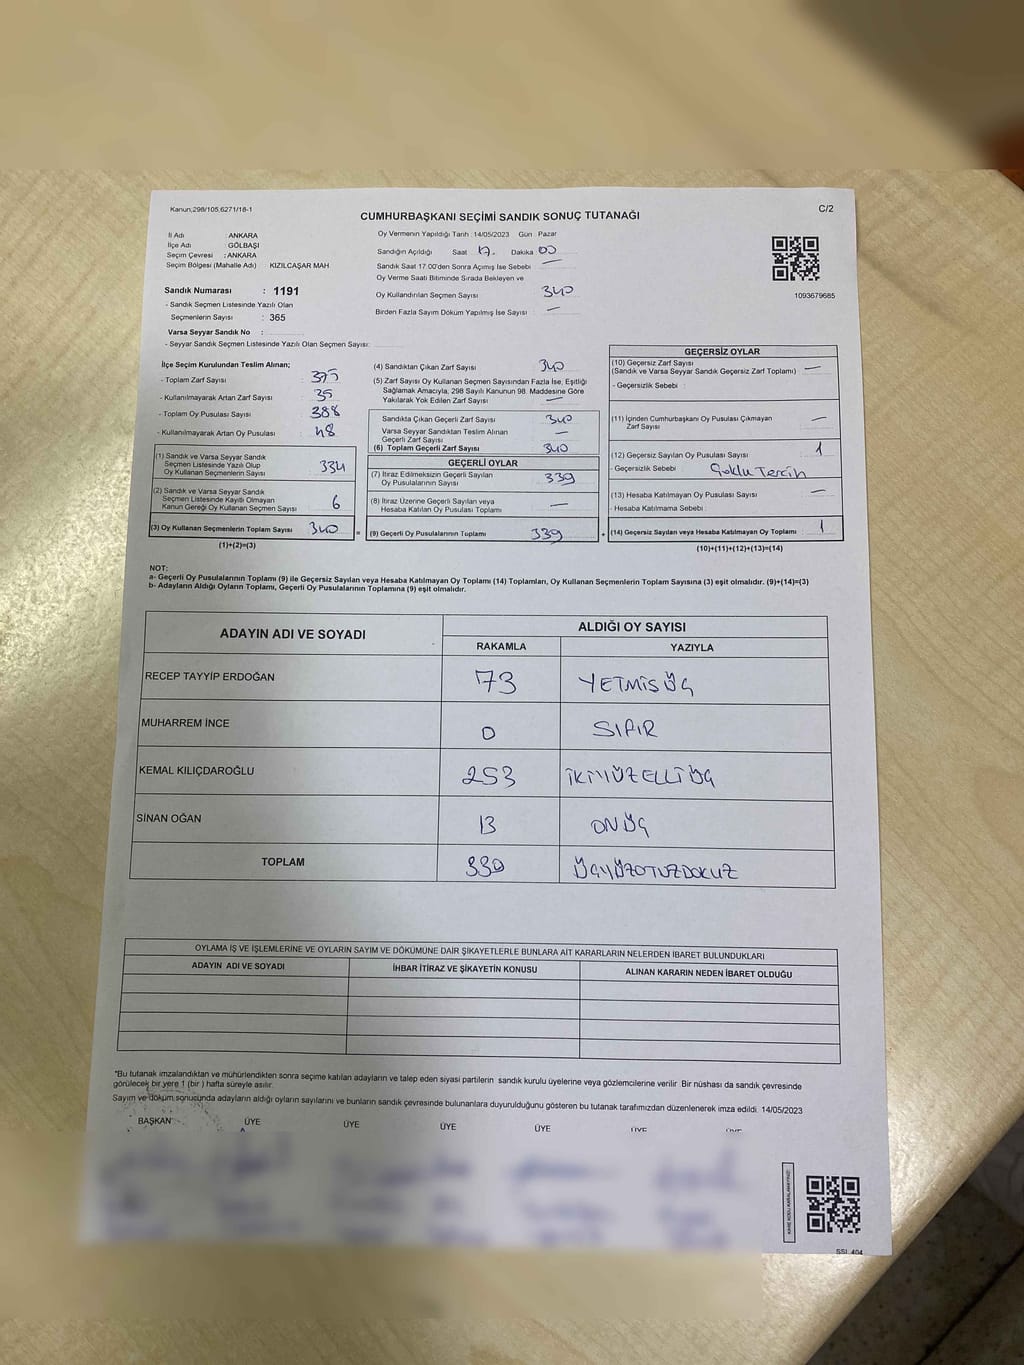 Kanun;298/105,6271/18-1
C/2
CUMHURBAŞKANI SEÇİMİ SANDIK SONUÇ TUTANAĞI
İl Adı : ANKARA
İlçe Adı : GÖLBAŞI
Seçim Çevresi : ANKARA
Seçim Bölgesi (Mahalle Adı) : KIZILCAŞAR MAH
Sandık Numarası : 1191
- Sandık Seçmen Listesinde Yazılı Olan
Seçmenlerin Sayısı : 365
Varsa Seyyar Sandık No :
- Seyyar Sandık Seçmen Listesinde Yazılı Olan Seçmen Sayısı:
Oy Vermenin Yapıldığı Tarih :14/05/2023 Gün : Pazar
Sandığın Açıldığı Saat 17. Dakika 00
Sandık Saat 17.00'den Sonra Açımış İse Sebebi —
Oy Verme Saati Bitiminde Sırada Bekleyen ve
Oy Kullandırılan Seçmen Sayısı 340
Birden Fazla Sayım Döküm Yapılmış İse Sayısı —
1093679685
İlçe Seçim Kurulundan Teslim Alınan;
- Toplam Zarf Sayısı : 375
- Kullanılmayarak Artan Zarf Sayısı : 35
- Toplam Oy Pusulası Sayısı : 388
- Kullanılmayarak Artan Oy Pusulası : 48
(1) Sandık ve Varsa Seyyar Sandık
Seçmen Listesinde Yazılı Olup
Oy Kullanan Seçmenlerin Sayısı 334
(2) Sandık ve Varsa Seyyar Sandık
Seçmen Listesinde Kayıtlı Olmayan
Kanun Gereği Oy Kullanan Seçmen Sayısı 6
(3) Oy Kullanan Seçmenlerin Toplam Sayısı 340
(1)+(2)=(3)
(4) Sandıktan Çıkan Zarf Sayısı 340
(5) Zarf Sayısı Oy Kullanan Seçmen Sayısından Fazla İse, Eşitliği
Sağlamak Amacıyla, 298 Sayılı Kanunun 98. Maddesine Göre
Yakılarak Yok Edilen Zarf Sayısı —
Sandıkta Çıkan Geçerli Zarf Sayısı 340
Varsa Seyyar Sandıktan Teslim Alınan
Geçerli Zarf Sayısı —
(6) Toplam Geçerli Zarf Sayısı 340
GEÇERLİ OYLAR
(7) İtiraz Edilmeksizin Geçerli Sayılan
Oy Pusulasının Sayısı 339
(8) İtiraz Üzerine Geçerli Sayılan veya
Hesaba Katılan Oy Pusulası Toplamı —
= (9) Geçerli Oy Pusulalarının Toplamı 339 +
GEÇERSİZ OYLAR
(10) Geçersiz Zarf Sayısı
(Sandık ve Varsa Seyyar Sandık Geçersiz Zarf Toplamı) —
- Geçersizlik Sebebi :
(11) İçinden Cumhurbaşkanı Oy Pusulası Çıkmayan
Zarf Sayısı —
(12) Geçersiz Sayılan Oy Pusulası Sayısı 1
- Geçersizlik Sebebi : Çoklu Tercih
(13) Hesaba Katılmayan Oy Pusulası Sayısı —
- Hesaba Katılmama Sebebi :
(14) Geçersiz Sayılan veya Hesaba Katılmayan Oy Toplamı : 1
(10)+(11)+(12)+(13)=(14)
NOT:
a- Geçerli Oy Pusulalarının Toplamı (9) ile Geçersiz Sayılan veya Hesaba Katılmayan Oy Toplamı (14) Toplamları, Oy Kullanan Seçmenlerin Toplam Sayısına (3) eşit olmalıdır. (9)+(14)=(3)
b- Adayların Aldığı Oyların Toplamı, Geçerli Oy Pusulalarının Toplamına (9) eşit olmalıdır.
ADAYIN ADI VE SOYADI
ALDIĞI OY SAYISI
RAKAMLA YAZIYLA
RECEP TAYYİP ERDOĞAN 73 YETMİSÜÇ
MUHARREM İNCE 0 SIFIR
KEMAL KILIÇDAROĞLU 253 İKİYÜZELLİÜÇ
SİNAN OĞAN 13 ONÜÇ
TOPLAM 339 ÜÇYÜZOTUZDOKUZ
OYLAMA İŞ VE İŞLEMLERİNE VE OYLARIN SAYIM VE DÖKÜMÜNE DAİR ŞİKAYETLERLE BUNLARA AİT KARARLARIN NELERDEN İBARET BULUNDUKLARI
ADAYIN ADI VE SOYADI İHBAR İTİRAZ VE ŞİKAYETİN KONUSU ALINAN KARARIN NEDEN İBARET OLDUĞU
*Bu tutanak imzalandıktan ve mühürlendikten sonra seçime katılan adayların ve talep eden siyasi partilerin sandık kurulu üyelerine veya gözlemcilerine verilir. Bir nüshası da sandık çevresinde
görülecek bir yere 1 (bir ) hafta süreyle asılır.
Sayım ve döküm sonucunda adayların aldığı oyların sayılarını ve bunların sandık çevresinde bulunanlara duyurulduğunu gösteren bu tutanak tarafımızdan düzenlenerek imza edildi. 14/05/2023
BAŞKAN ÜYE ÜYE ÜYE ÜYE ÜYE ÜYE
SSİ 404